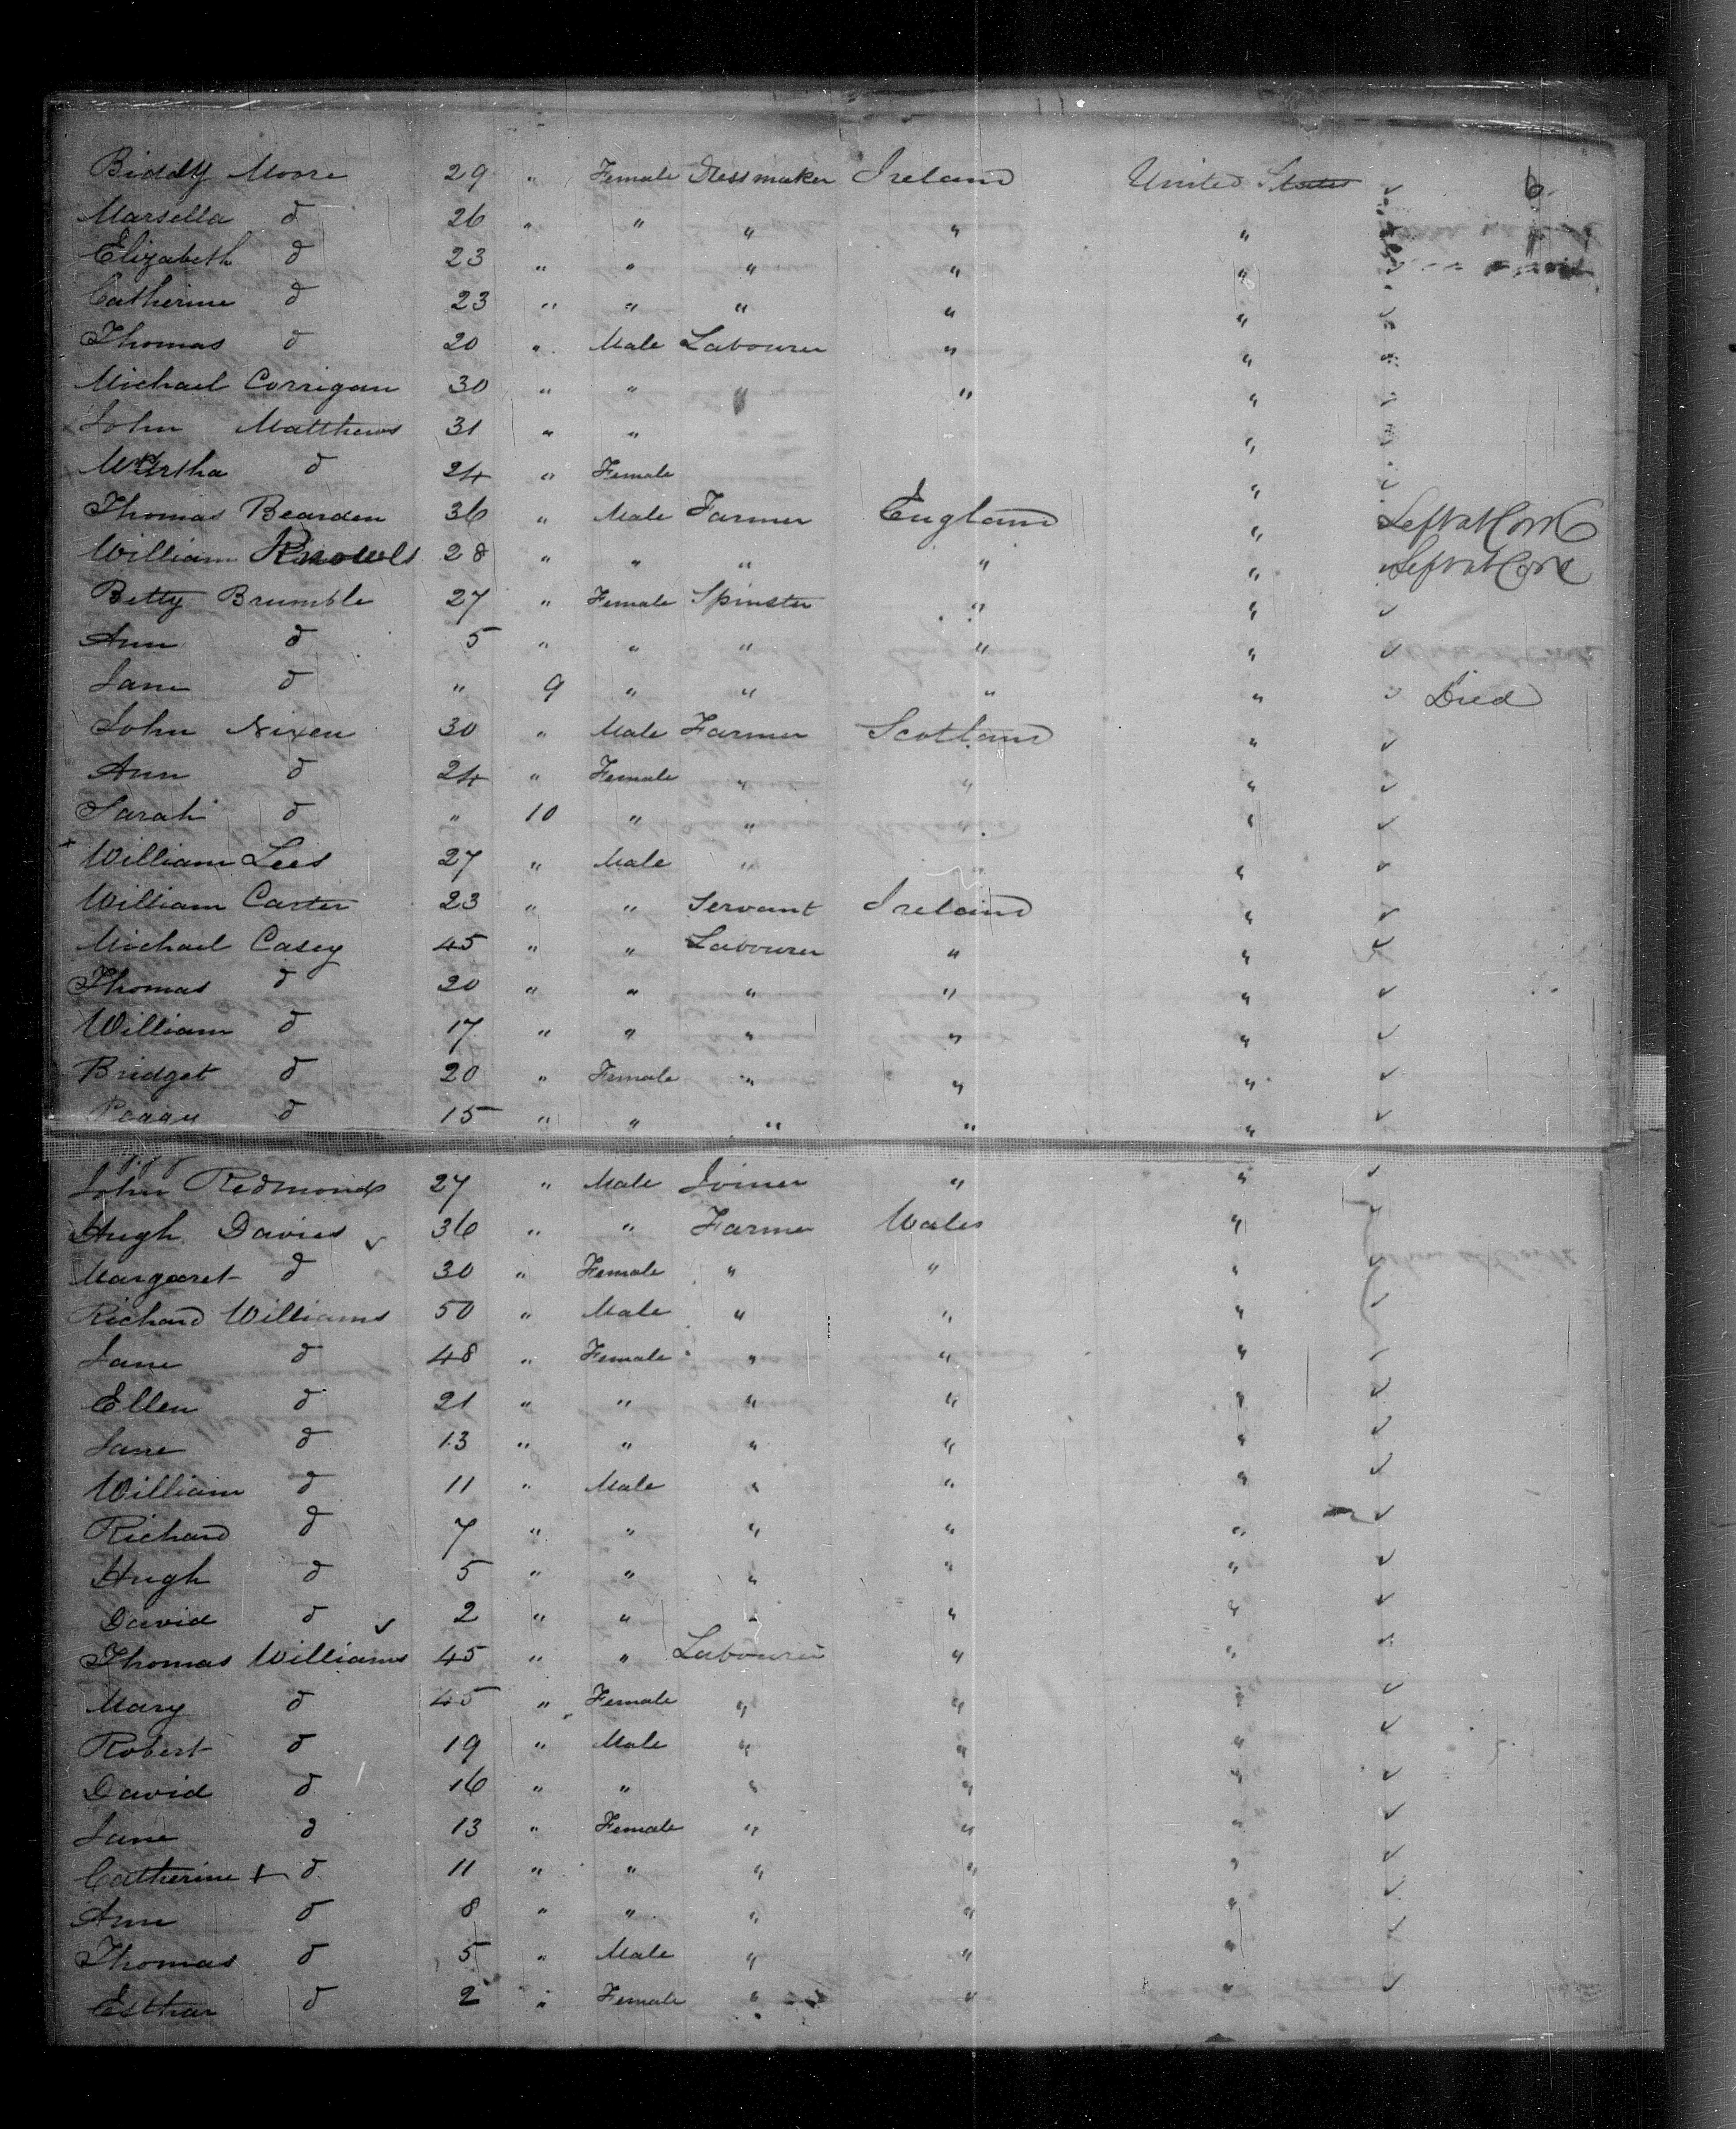 6
Biddy Moore 29 " Female Dressmaker Ireland United States
Marsella d 26 " " " " "
Elizabeth d 23 " " " " "
Catherine d 23 " " " " "
Thomas d 20 " Male Labourer " "
Michael Corrigan 30 " " " " "
John Matthews 31 " " "
Martha d 24 " Female "
Thomas Bearden 36 " Male Farmer England " Left at Cork
William 28 " " " " " Left at Cork
Betty Brumble 27 " Female Spinster " "
Ann d 5 " " " " "
Jane d " 9 " " " " Died
John Nixen 30 " Male Farmer Scotland "
Ann d 24 " Female " " "
Sarah d " 10 " " " "
William Lees 27 " Male " " "
William Carter 23 " " Servant Ireland "
Michael Casey 45 " " Labourer " "
Thomas d 20 " " " " "
William d 17 " " " " "
Bridget d 20 " Female " " "
Peggy d 15 " " " " "
John Redmonds 27 " Male Joiner " "
Hugh Davies 36 " " Farmer Wales "
Margaret d 30 " Female " " "
Richard Williams 50 " Male " " "
Jane d 48 " Female " " "
Ellen d 21 " " " " "
Jane d 13 " " " " "
William d 11 " Male " " "
Richard d 7 " " " " "
Hugh d 5 " " " " "
David d 2 " " " " "
Thomas Williams 45 " " Labourer " "
Mary d 45 " Female " " "
Robert d 19 " Male " " "
David d 16 " " " " "
Jane d 13 " Female " " "
Catherine + d 11 " " " " "
Ann d 8 " " " " "
Thomas d 5 " Male " " "
Esther d 2 " Female " " "